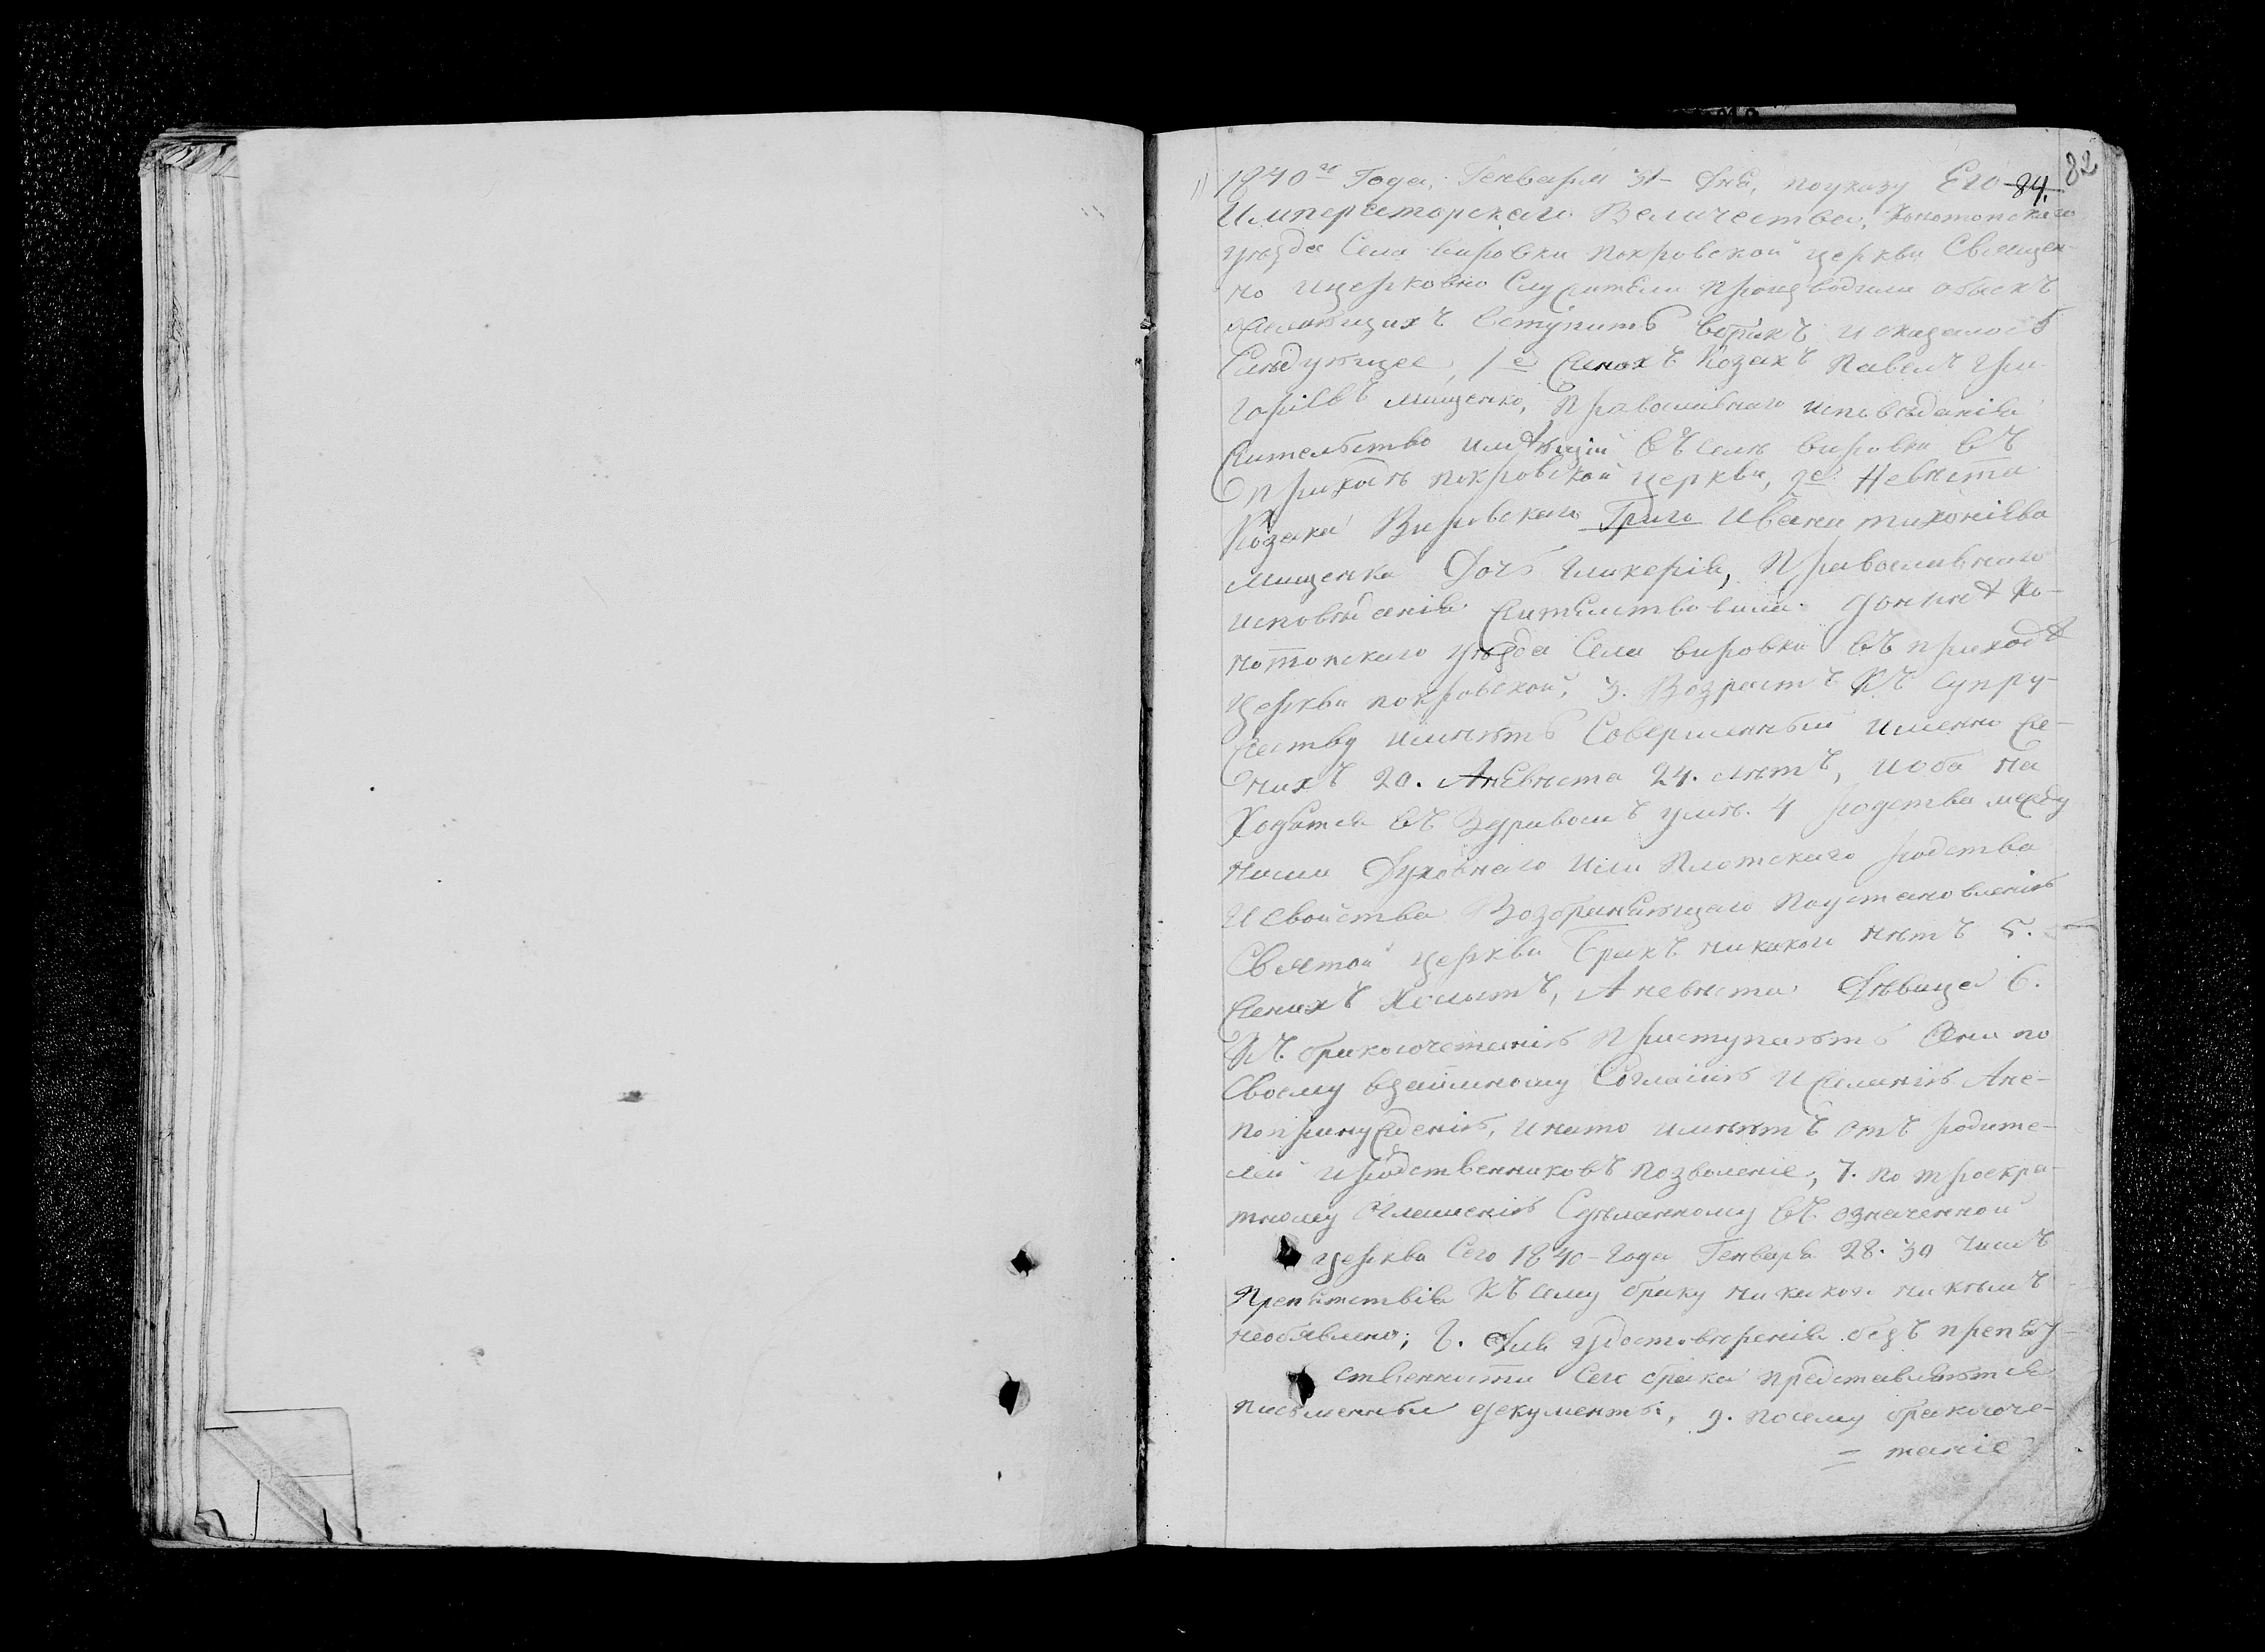 82
1840го Года, Генваря 31 Дня, по указу Его 84.
Императорскаго Величества, Конотопскаго
уезда Села вировки покровской церкви Священ-
но ицерковно Служители производили обыскъ
желающихъ вступить вбракъ, и оказалось
Следующее, 1е Женихъ Козакъ Павелъ Гри-
горіевъ Мищенко, Православнаго исповѣданія
Жительство имѣющій въ селѣ вировки въ
приходѣ покровской церкви, 2е Невѣста
Козака Вировскаго Григо Ивана тихоніева
Мищенка Дочь Гликерія, Православнаго
исповѣданія Жительствовала донинѣ Ко-
нотопскаго уѣзда Села вировки въ приходѣ
Церкви покровской, 3. Возрастъ Къ Супру-
жеству имѣютъ Совершенный именно Же-
нихъ 20. Аневѣста 24. лѣтъ, и оба на
ходятся въ Здравомъ умѣ. 4 родства между
ними Духовнаго или Плотскаго родства
И Свойства Возбраняющаго По установленію
Святой церкви Бракъ никакого нѣтъ 5.
Женихъ Холостъ, А невѣста Дѣвица 6.
Къ бракосочетанію Приступаютъ они по
Своему взаимному Согласію и Желанію Ане-
попринужденію, инато имѣютъ отъ родите-
лей и родственниковъ позволеніе, 7. по троекра
тному оглашенію Сдѣланному въ означенной
церкви Сего 1840-Года Генваря 28. 30 числъ
Препятствія Къ сему браку никакого никѣмъ
необявлено; 8. Для удостовѣренія безъ препят-
ственности Сего брака представляются
письменныя документы, 9. посему бракосоче-
= таніе